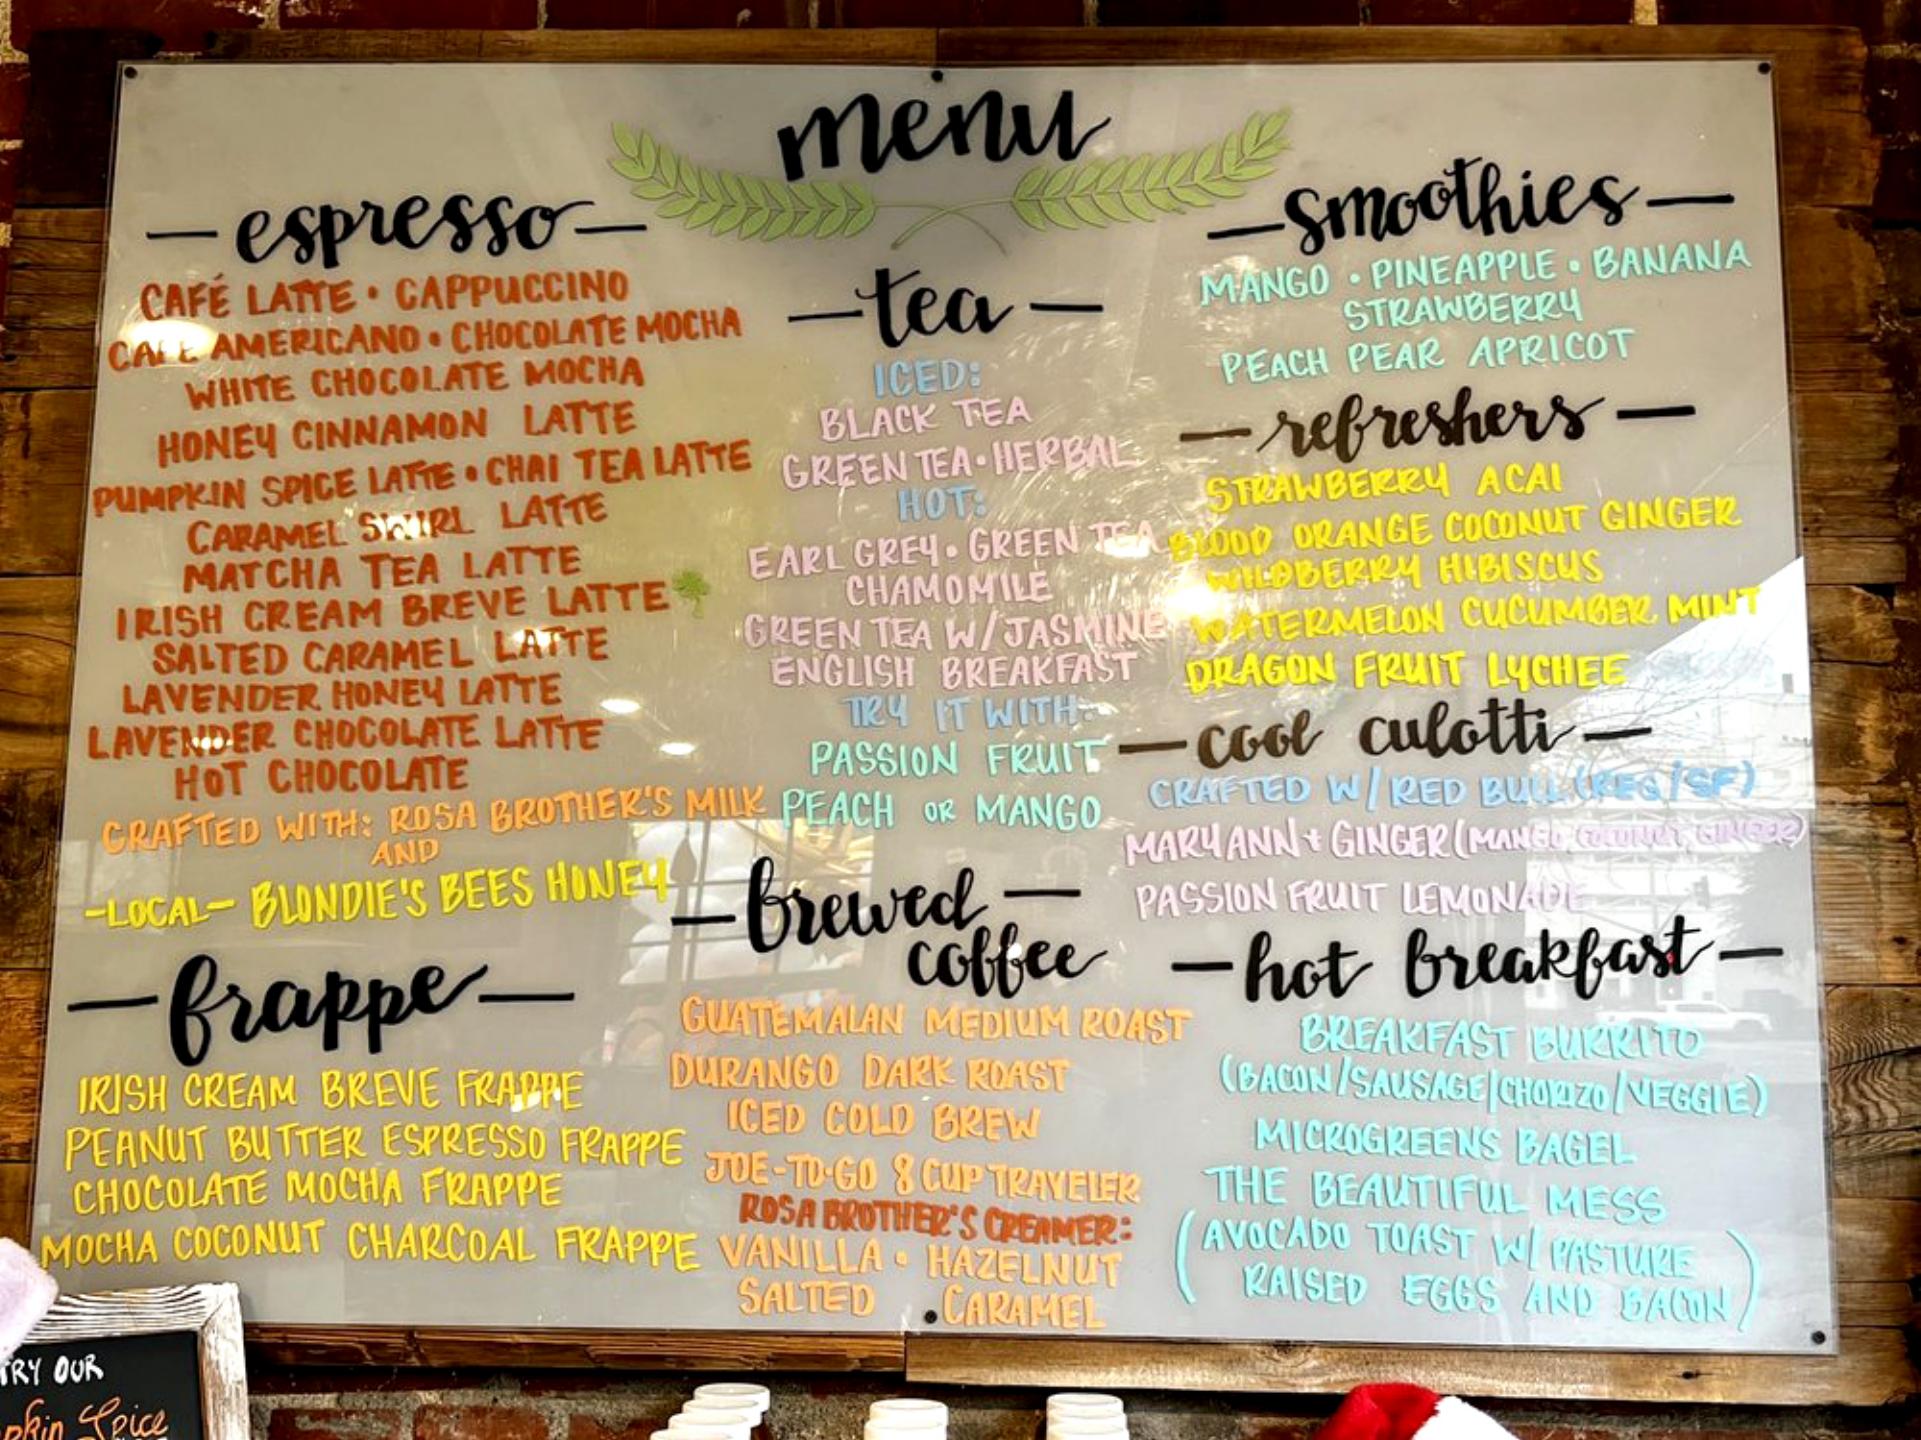 menu
espresso
CAFÉ LATTE • CAPPUCCINO
CAFE AMERICANO • CHOCOLATE MOCHA
WHITE CHOCOLATE MOCHA
HONEY CINNAMON LATTE
PUMPKIN SPICE LATTE • CHAI TEA LATTE
CARAMEL SWIRL LATTE
MATCHA TEA LATTE
IRISH CREAM BREVE LATTE
SALTED CARAMEL LATTE
LAVENDER HONEY LATTE
LAVENDER CHOCOLATE LATTE
HOT CHOCOLATE
CRAFTED WITH: ROSA BROTHER'S MILK
AND
-LOCAL- BLONDIE'S BEES HONEY
frappe
IRISH CREAM BREVE FRAPPE
PEANUT BUTTER ESPRESSO FRAPPE
CHOCOLATE MOCHA FRAPPE
MOCHA COCONUT CHARCOAL FRAPPE
tea
ICED:
BLACK TEA
GREEN TEA • HERBAL
HOT:
EARL GREY • GREEN TEA
CHAMOMILE
GREEN TEA W/JASMINE
ENGLISH BREAKFAST
TRY IT WITH:
PASSION FRUIT
PEACH OR MANGO
brewed
coffee
GUATEMALAN MEDIUM ROAST
DURANGO DARK ROAST
ICED COLD BREW
JOE-TO-GO 8 CUP TRAVELER
ROSA BROTHER'S CREAMER:
VANILLA • HAZELNUT
SALTED CARAMEL
smoothies
MANGO • PINEAPPLE • BANANA
STRAWBERRY
PEACH PEAR APRICOT
refreshers
STRAWBERRY ACAI
BLOOD ORANGE COCONUT GINGER
WILDBERRY HIBISCUS
WATERMELON CUCUMBER MINT
DRAGON FRUIT LYCHEE
cool culotti
CRAFTED W/RED BULL (REG/SF)
MARYANN + GINGER (MANGO, COCONUT, GINGER)
PASSION FRUIT LEMONADE
hot breakfast
BREAKFAST BURRITO
(BACON/SAUSAGE/CHORIZO/VEGGIE)
MICROGREENS BAGEL
THE BEAUTIFUL MESS
(AVOCADO TOAST W/ PASTURE
RAISED EGGS AND BACON)
TRY OUR
pkin Spice